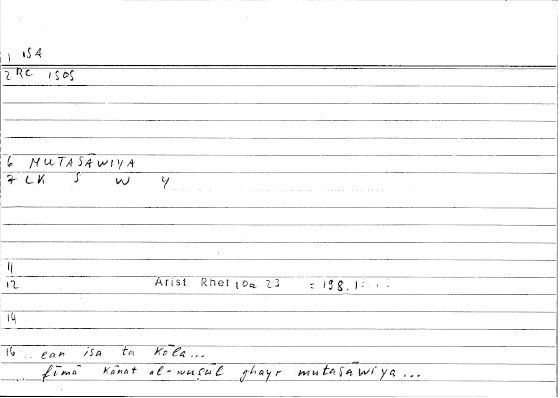 1 ISA
2 RC ISOS
6 MUTASĀWIYA
7 LK S W Y
11
12 Arist Rhet 10a 23 = 198.1
14
16 .. ean isa ta kōla...
fīmā kānat al-wuṣūl ghayr mutasāwiya...